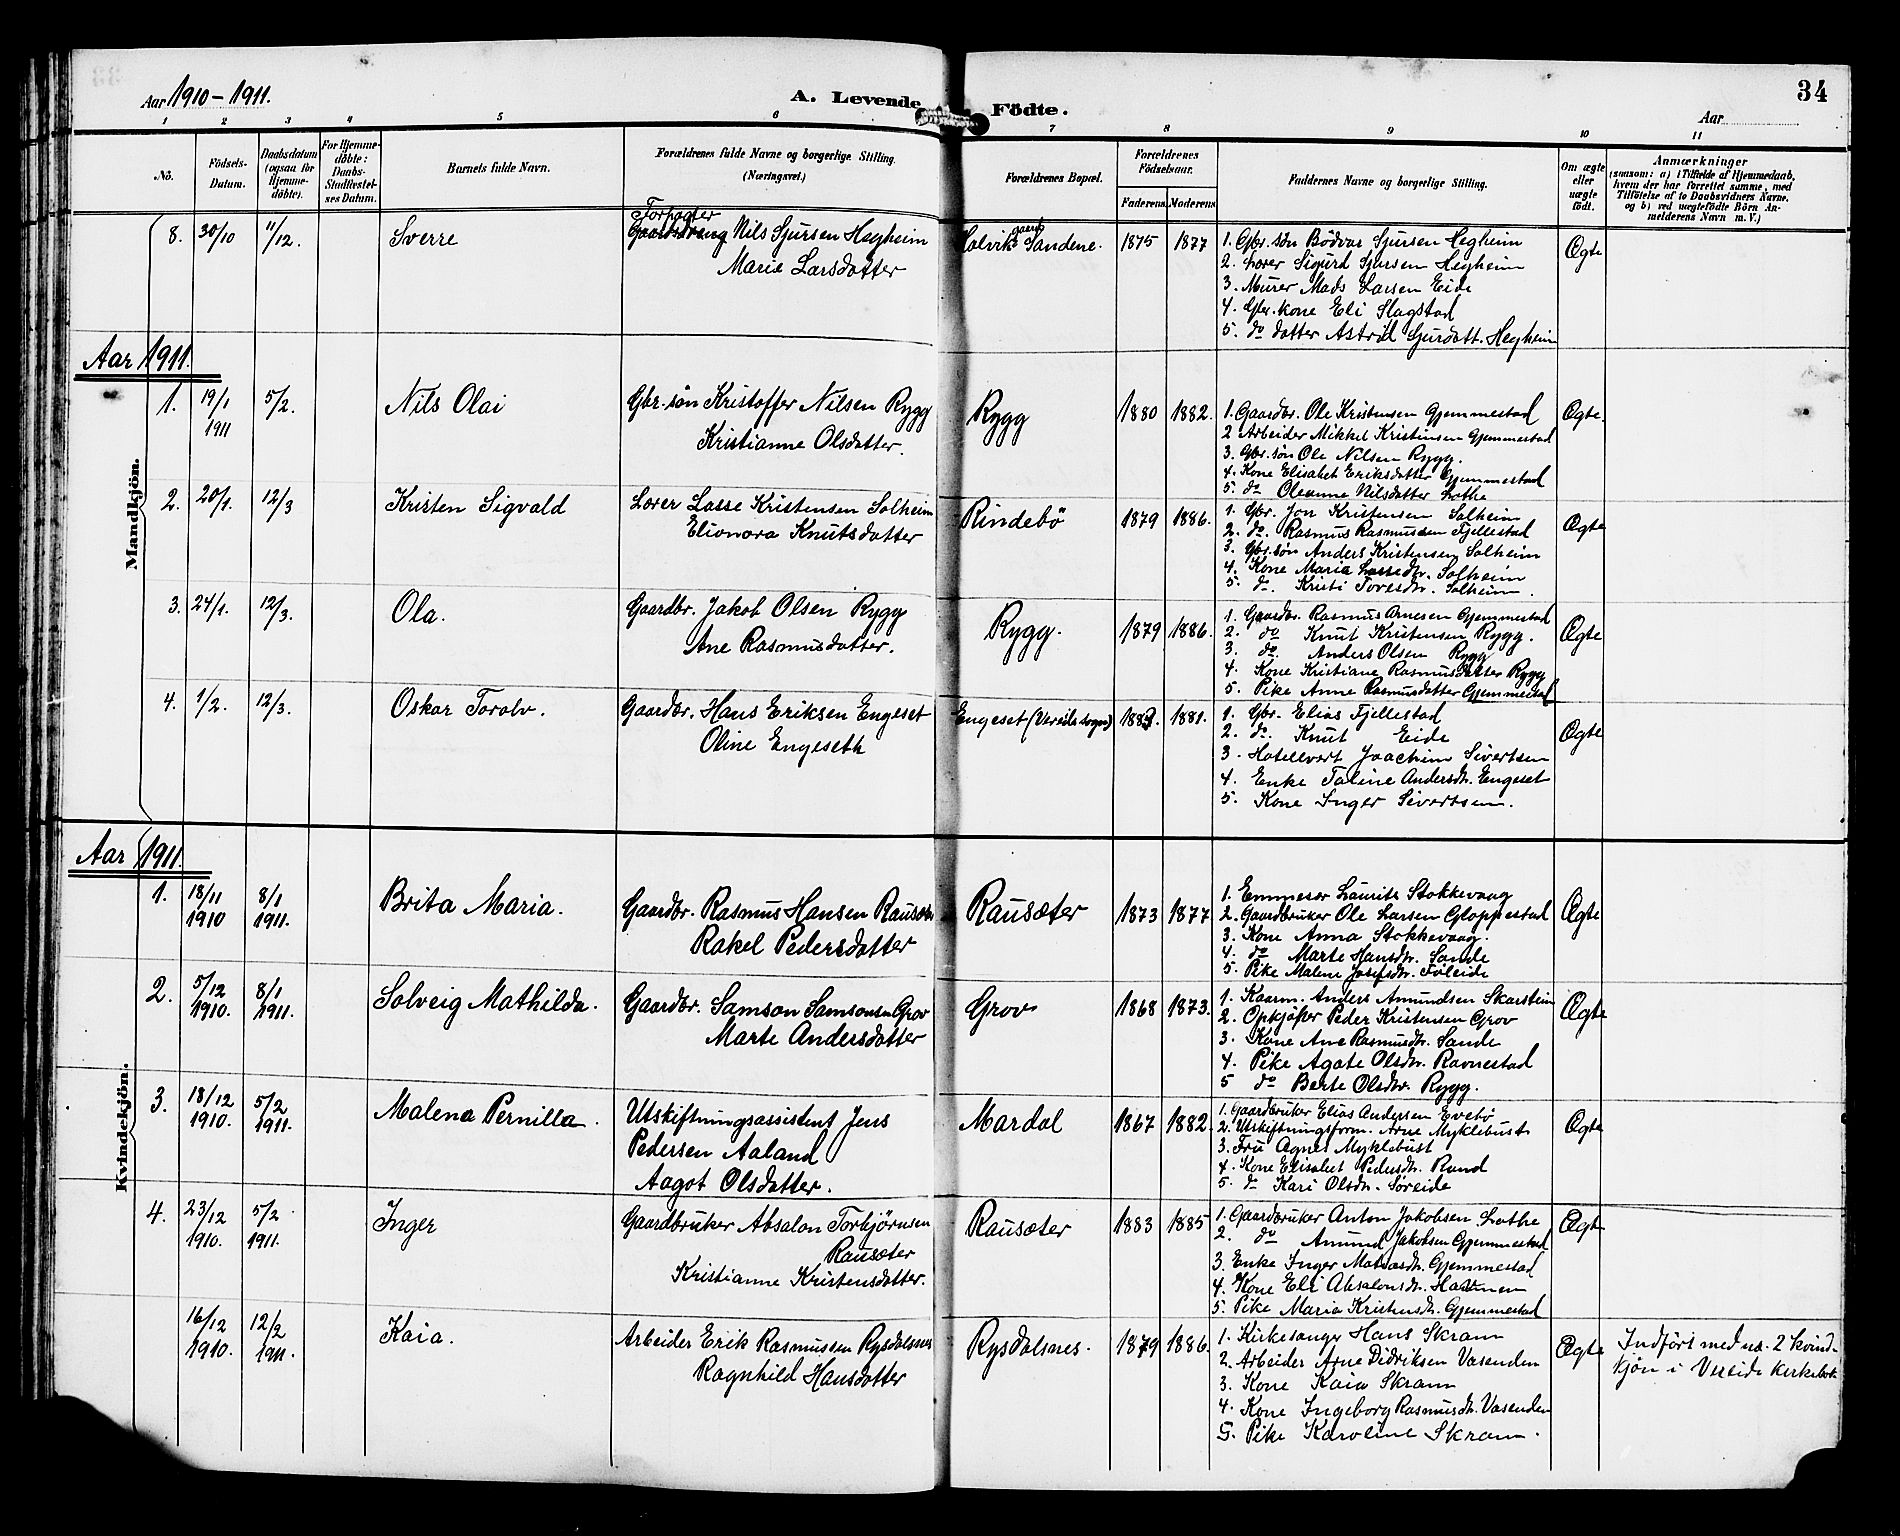 34
Aar 1910-1911.
A. Levende Födte.
Aar
1 2 3 4 5 6 7 8 9 10 11
No.
Födsels-Datum.
Daabsdatum (ogsaa for Hjemme-döbte).
For Hjemme-döbte: Daabs-Stadfæstel-ses Datum.
Barnets fulde Navn.
Forældrenes fulde Navne og borgerlige Stilling. (Næringsvei.)
Forældrenes Bopæl.
Forældrenes Födselsaar.
Faderens Moderens
Faddernes Navne og borgerlige Stilling.
Om ægte eller uægte födt.
Anmærkninger
(saasom: a) i Tilfælde af Hjemmedaab, hvem der har forrettet samme, med Tilföielse af to Daabsvidners Navne. og b) ved uægtefödte Börn An-melderens Navn m. V.)
8. 30/10 11/12. Sverre
Forpagter
Gaardsdreng Nils Sjursen Hegheim
Marie Larsdatter
gaard
Holvik Sandene. 1875 1877
1. Gbr. søn Bødvar Sjursen Hegheim
2. Lærer Sigurd Sjursen Hegheim
3. Murer Mads Larsen Eide
4. Gbr. kone Eli Slagstad
5. do datter Astrid Sjurdatt. Hegheim
Ægte
Aar 1911.
Mandkjön.
1. 19/1 1911 5/2. Nils Olai
Gbr. søn Kristoffer Nilsen Rygg
Kristianne Olsdatter.
Rygg 1880 1882.
1. Gaardbr. Ole Kristensen Gjemmestad
2 Arbeider Mikkel Kristensen Gjemmestad
3. Gbr. søn Ole Nilsen Rygg.
4. Kone Elisabet Eriksdatter Gjemmestad
5. do Oleanne Nilsdatter Lothe
Ægte.
2. 20/1. 12/3 Kristen Sigvald
Lærer Lasse Kristensen Solheim
Elionora Knutsdatter
Rindebö 1879 1886.
1. Gbr. Jon Kristensen Solheim
2. do. Rasmus Rasmussen Fjellestad
3. Gbr. søn Anders Kristensen Solheim
4. Kone Maria Lassedtr. Solheim
5. do. Kristi Tovesdtr. Solheim.
Ægte
3. 24/1. 12/3. Ola.
Gaardbr. Jakob Olsen Rygg
Ane Rasmusdatter.
Rygg. 1879 1886.
1. Gaardbr. Rasmus Arnesen Gjemmestad
2. do Knut Kristensen Rygg.
3. do. Anders Olsen Rygg
4. Kone Kristiane Rasmusdatter Rygg
5. Pike Anne Rasmusdatter Gjemmestad
Ægte
4. 1/2. 12/3. Oskar Toralv.
Gaardbr. Hans Eriksen Engeset
Oline Engeseth
Engeset (Vereide sogn) 1881.
1. Gbr. Elias Fjellestad
2. do. Knut Eide
3. Hotelvert Joachim Sivertsen
4. Enke Taline Andersdtr. Engeset
5. Kone Inger Sivertsen.
Ægte
Aar 1911.
Kvindekjön.
1. 18/11 1910 8/1 1911. Brita Maria.
Gaardbr. Rasmus Hansen Rausæter
Rakel Pedersdatter
Rausæter 1873 1877
1. Emmesær Laurits Stokkevaag
2. Gaardbruker Ole Larsen Gloppestad
3. Kone Anna Stokkevaag.
4. do Marte Hansdtr. Sande
5. Pike Malene Josefsdtr. Föleide
Ægte
2. 5/12 1910. 8/1 1911. Solveig Mathilda.
Gaardbr. Samson Samsonsen Grov
Marte Andersdatter
Grov 1868 1873.
1. Kaarm. Anders Amundsen Skarstein
2. Opkjøper Peder Kristensen Grov
3. Kone Ane Rasmusdtr. Sande
4. Pike Agate Olsdtr. Ravnestad
5 do Berte Olsdtr. Rygg.
Ægte
3. 18/12 1910. 5/2 1911. Malena Pernilla.
Utskiftningsassistent Jens
Pedersen Aaland
Aagot Olsdatter.
Mardal 1867 1882.
1. Gaardbruker Elias Andersen Evebø
2. Utskiftningsform. Arne Myklebust
3. Fru Agnes Myklebust
4. Kone Elisabet Pedersdtr. Rand
5. do Kari Olsdtr. Søreide
Ægte
4. 23/12 1910. 5/2 1911. Inger
Gaardbruker Absalon Torbjörnsen
Rausæter
Kristianne Kristensdatter.
Rausæter 1883 1885
1. Gaardbruker Anton Jakobsen Lothe
2. do Amund Jakobsen Gjemmestad
3. Enke Inger Matiasdtr. Gjemmestad
4. Kone Eli Absalonsdtr.
5. Pike Maria Kristensdtr. Gjemmestad
Ægte
16/12 1910. 12/2 1911. Kaia.
Arbeider Erik Rasmussen Rysdalsnes
Ragnhild Hansdatter
Rysdalsnes. 1879 1886.
1. Kirkesanger Hans Skram
2. Arbeider Arne Didriksen Vasenden
3. Kone Kaia Skram
4. Kone Ingeborg Rasmusdtr. Vasenden
5. Pike Karoline Skram.
Ægte
Indført med no. 2 kvind-
kjøn i Vereide kirkebok